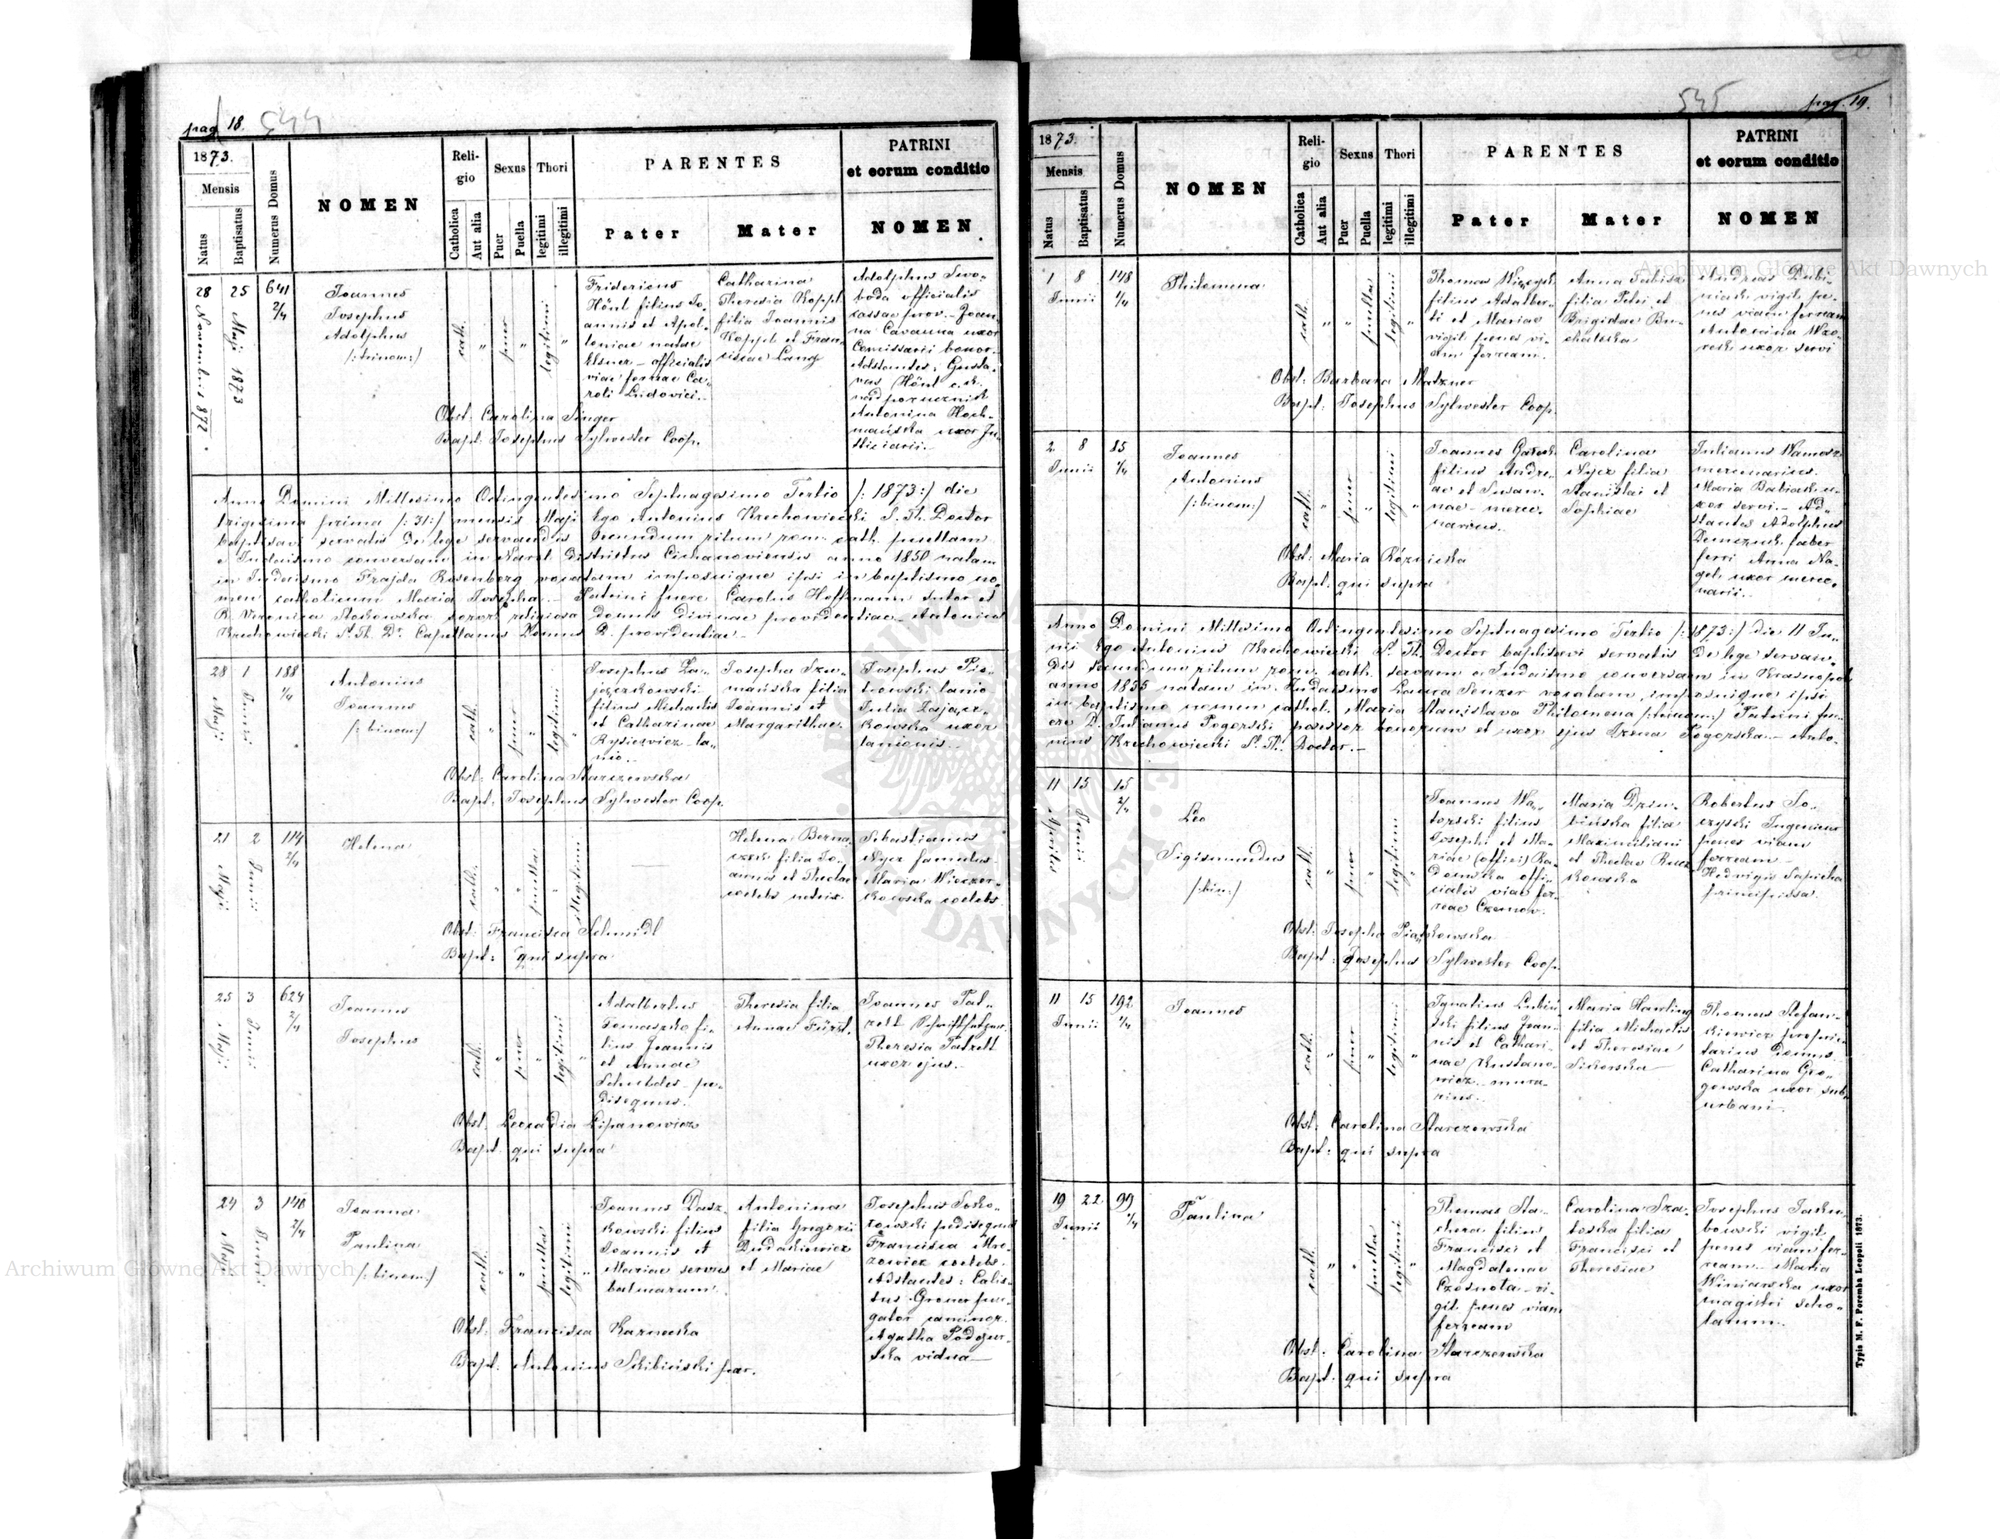 pag. 18. 544
1873.
Mensis
Natus
Baptisatus
Numerus Domus
NOMEN
Religio
Catholica
Aut alia
Sexus
Puer
Puella
Thori
legitimi
illegitimi
PARENTES
Pater
Mater
PATRINI
et eorum conditio
NOMEN
28 Novembris 1872.
25 Maji 1873
641
2/4
Joannes
Josephus
Adolphus
/:trinom:/
cath.
"
puer
"
legitimi
"
Fridericus
Hönl filius Jo-
annis et Apol-
loniae natae
Elsner – officialis
viae ferreae Ca-
roli Ludovici..
Catharina
Theresia Koppl
filia Joannis
Koppl et Fran-
ciscae Lang
Adolphus Swo-
boda officialis
cassae prov. – Joan-
na Cavanna uxor
Comissarii honor.
Adstantes: Gusta-
vus Hönl c. k.
nadporucznik
Antonina Hoch-
mańska uxor Ju-
stitiarii..
Obst: Carolina Singer
Bapt: Josephus Sylwester Coop.
Anno Domini Millesimo Octingentesimo Septuagesimo Tertio /:1873:/ die
trigesima prima /:31:/ mensis Maji Ego Antonius Krechowiecki S. Th. Doctor
baptisavi servatis De lege servandis secundum ritum rom. cath. puellam
e Judaismo conversam in Districtus Ciechanoviensis anno 1850 natam
in Judaismo Frajda Rosenberg vocatam imposuique ipsi in baptismo no-
men catholicum Maria Josepha. – Patrini fuere Carolus Hoffmann sutor et
B. Veronica Stokowska soror religiosa Domus divinae providentiae – Antonius
Krechowiecki S. Th. Dr. Capellanus Domus D. providentiae –
28 Maji
1 Junii
188
1/4
Antonius
Joannes
/:binom:/
cath.
"
puer
"
legitimi
"
Josephus Za-
jączkowski
filius Michaelis
et Catharinae
Rysiewicz la-
nio..
Josepha Szu-
mańska filia
Joannis et
Margarithae
Josephus Pio-
trowski lanio
Julia Zającz-
kowska uxor
lanionis..
Obst: Carolina Starczewska
Bapt: Josephus Sylwester Coop.
21 Maji
2 Junii
114
2/4
Helena
cath.
"
"
puella
"
illegitimi
Helena Berna-
czek filia Jo-
annis et Theclae
coelebs
Sebastianus
Nycz famulus
Maria Wieczor-
kowska coelebs
Obst: Francisca Schmidl
Bapt: qui supra
25 Maji
3 Junii
624
2/4
Joannes
Josephus
cath.
"
puer
"
legitimi
"
Adalbertus
Tomaszko fi-
lius Joannis
et Annae
Schubdes pe-
disequus.
Theresia filia
Annae Fürst.
Joannes Pat-
zelt Schriftsetzer
Theresia Patzelt
uxor ejus.
Obst: Leocadia Lipanowicz
Bapt: qui supra
24 Maji
3 Junii
140
2/4
Joanna
Paulina
/:binom:/
cath.
"
"
puella
legitimi
"
Joannes Dasz-
kowski filius
Joannis et
Mariae servus
balnearum
Antonina
filia Gregorii
Dudakiewicz
et Mariae
Josephus Soko-
łowski pedisequus
Francisca Mro-
zowicz coelebs.
Adstantes: Calix-
tus Groner pur-
gator caminor.
Agatha Podgur-
ska vidua –
Obst: Francisca Karnecka
Bapt: Antonius Skibiński par.
545 pag. 19.
1873.
Mensis
Natus
Baptisatus
Numerus Domus
NOMEN
Religio
Catholica
Aut alia
Sexus
Puer
Puella
Thori
legitimi
illegitimi
PARENTES
Pater
Mater
PATRINI
et eorum conditio
NOMEN
1 8
Junii
148
1/4
Philomena
cath.
"
"
puella
legitimi
"
Thomas
filius Adalber-
ti et Mariae
vigil penes vi-
am ferream.
Anna
filia Petri et
Brigidae Bu-
chalska
Andreas Dubi-
niecki vigil pe-
nes viam ferream
Antonina
uxor servi
Obst: Barbara Matzner
Bapt: Josephus Sylwester Coop.
2 8
Junii
85
1/4
Joannes
Antonius
/:binom:/
cath.
"
puer
"
legitimi
"
Joannes
filius Andre-
ae et Susan-
nae – merce-
narius.
Carolina
Nycz filia
Stanislai et
Sophiae
Julianus
mercenarius.
Maria u-
xor servi – Ad-
stantes Adolphus
faber
ferri Anna Na-
gel uxor merce-
narii..
Obst: Maria Różnicka
Bapt: qui supra
Anno Domini Millesimo Octingentesimo Septuagesimo Tertio /:1873:/ die 11 Ju-
nii Ego Antonius Krechowiecki S. Th. Doctor baptisavi servatis De lege servan-
dis secundum ritum rom. cath. servam e Judaismo conversam in Krasnopol
anno 1855 natam in Judaismo Laura Senzer vocatam, imposuique ipsi
in baptismo nomen cathol. Maria Stanislava Philomena /:trinom:/ Patrini fue-
re D. Julianus Pogorski possessor bonorum et uxor ejus Pogorska – Anto-
nius Krechowiecki S. Th. Doctor. –
11 Aprilis
15 Junii
15
2/4
Leo
Sigismundus
/:bin:/
cath.
"
puer
"
legitimi
"
Joannes
filius
Josephi et Ma-
riae
offi-
cialis viae fer-
reae Czernov.
Maria
filia
Maximiliani
et Theclae
kowska
Robertus
Ingenieur
penes viam
ferream –
Hedvigis Sapieha
principissa.
Obst: Josepha Piątkowska
Bapt: Josephus Sylwester Coop.
11 15
Junii
192
1/4
Joannes
cath.
"
puer
"
legitimi
"
Ignatius
filius Joan-
nis et Cathari-
nae
mura-
rius.
Maria Hawling
filia Michaelis
et Theresiae
Sikorska
Thomas Stefan-
kiewicz proprie-
tarius Domus.
Catharina Gro-
gowska uxor sub-
urbani.
Obst: Carolina Starczewska
Bapt: qui supra
19 22
Junii
99
1/4
Paulina
cath.
"
"
puella
legitimi
"
Thomas Sta-
chera filius
Francisci et
Magdalenae
Czosnota – vi-
gil penes viam
ferream
Carolina Sza-
toska filia
Francisci et
Theresiae
Josephus Jaku-
bowski vigil
penes viam fer-
ream. – Maria
Winiarska uxor
magistri scho-
larum..
Obst: Carolina Starczewska
Bapt: qui supra
Typis M. F. Poremba Leopoli 1873.
Archiwum Główne Akt Dawnych
Archiwum Główne Akt Dawnych